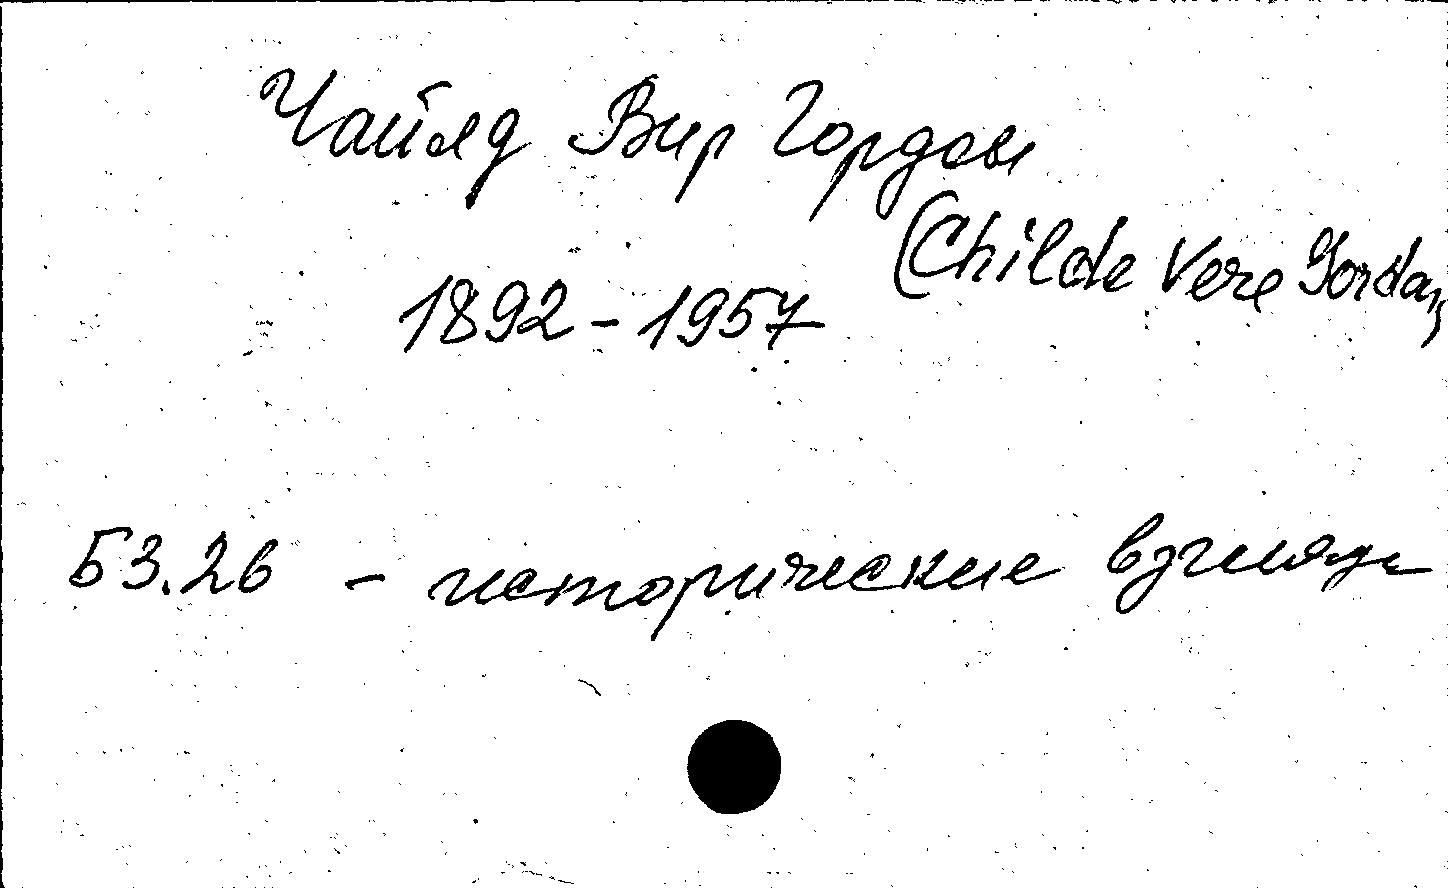 Чайлд Вир Гордон
(Childe Vere Gordon)
1892-1957
Б3.2в - исторические взгляды